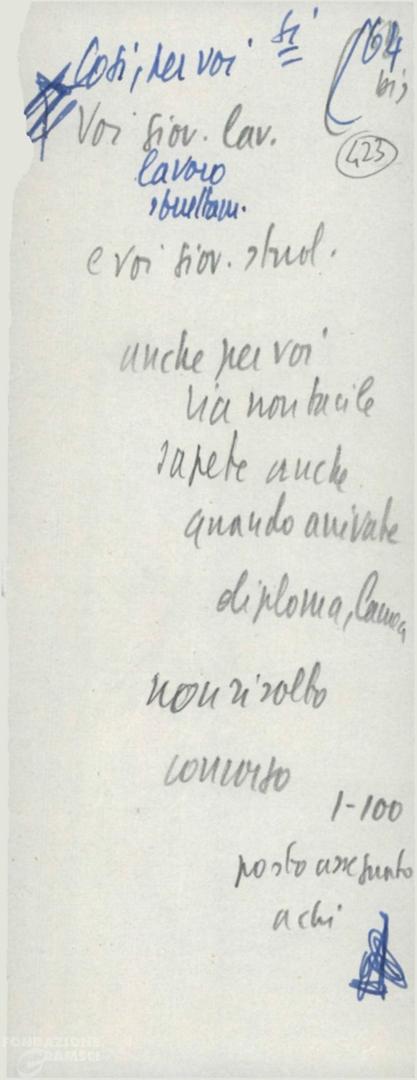 Così, per voi sì
64
bis
423
Voi giov. lav.
lavoro
sfruttam.
e voi giov. stud.
anche per voi
via non facile
sapete anche
quando arrivate
diploma, laurea
non risolto
concorso
1-100
posto assegnato
a chi
FONDAZIONE
GRAMSCI